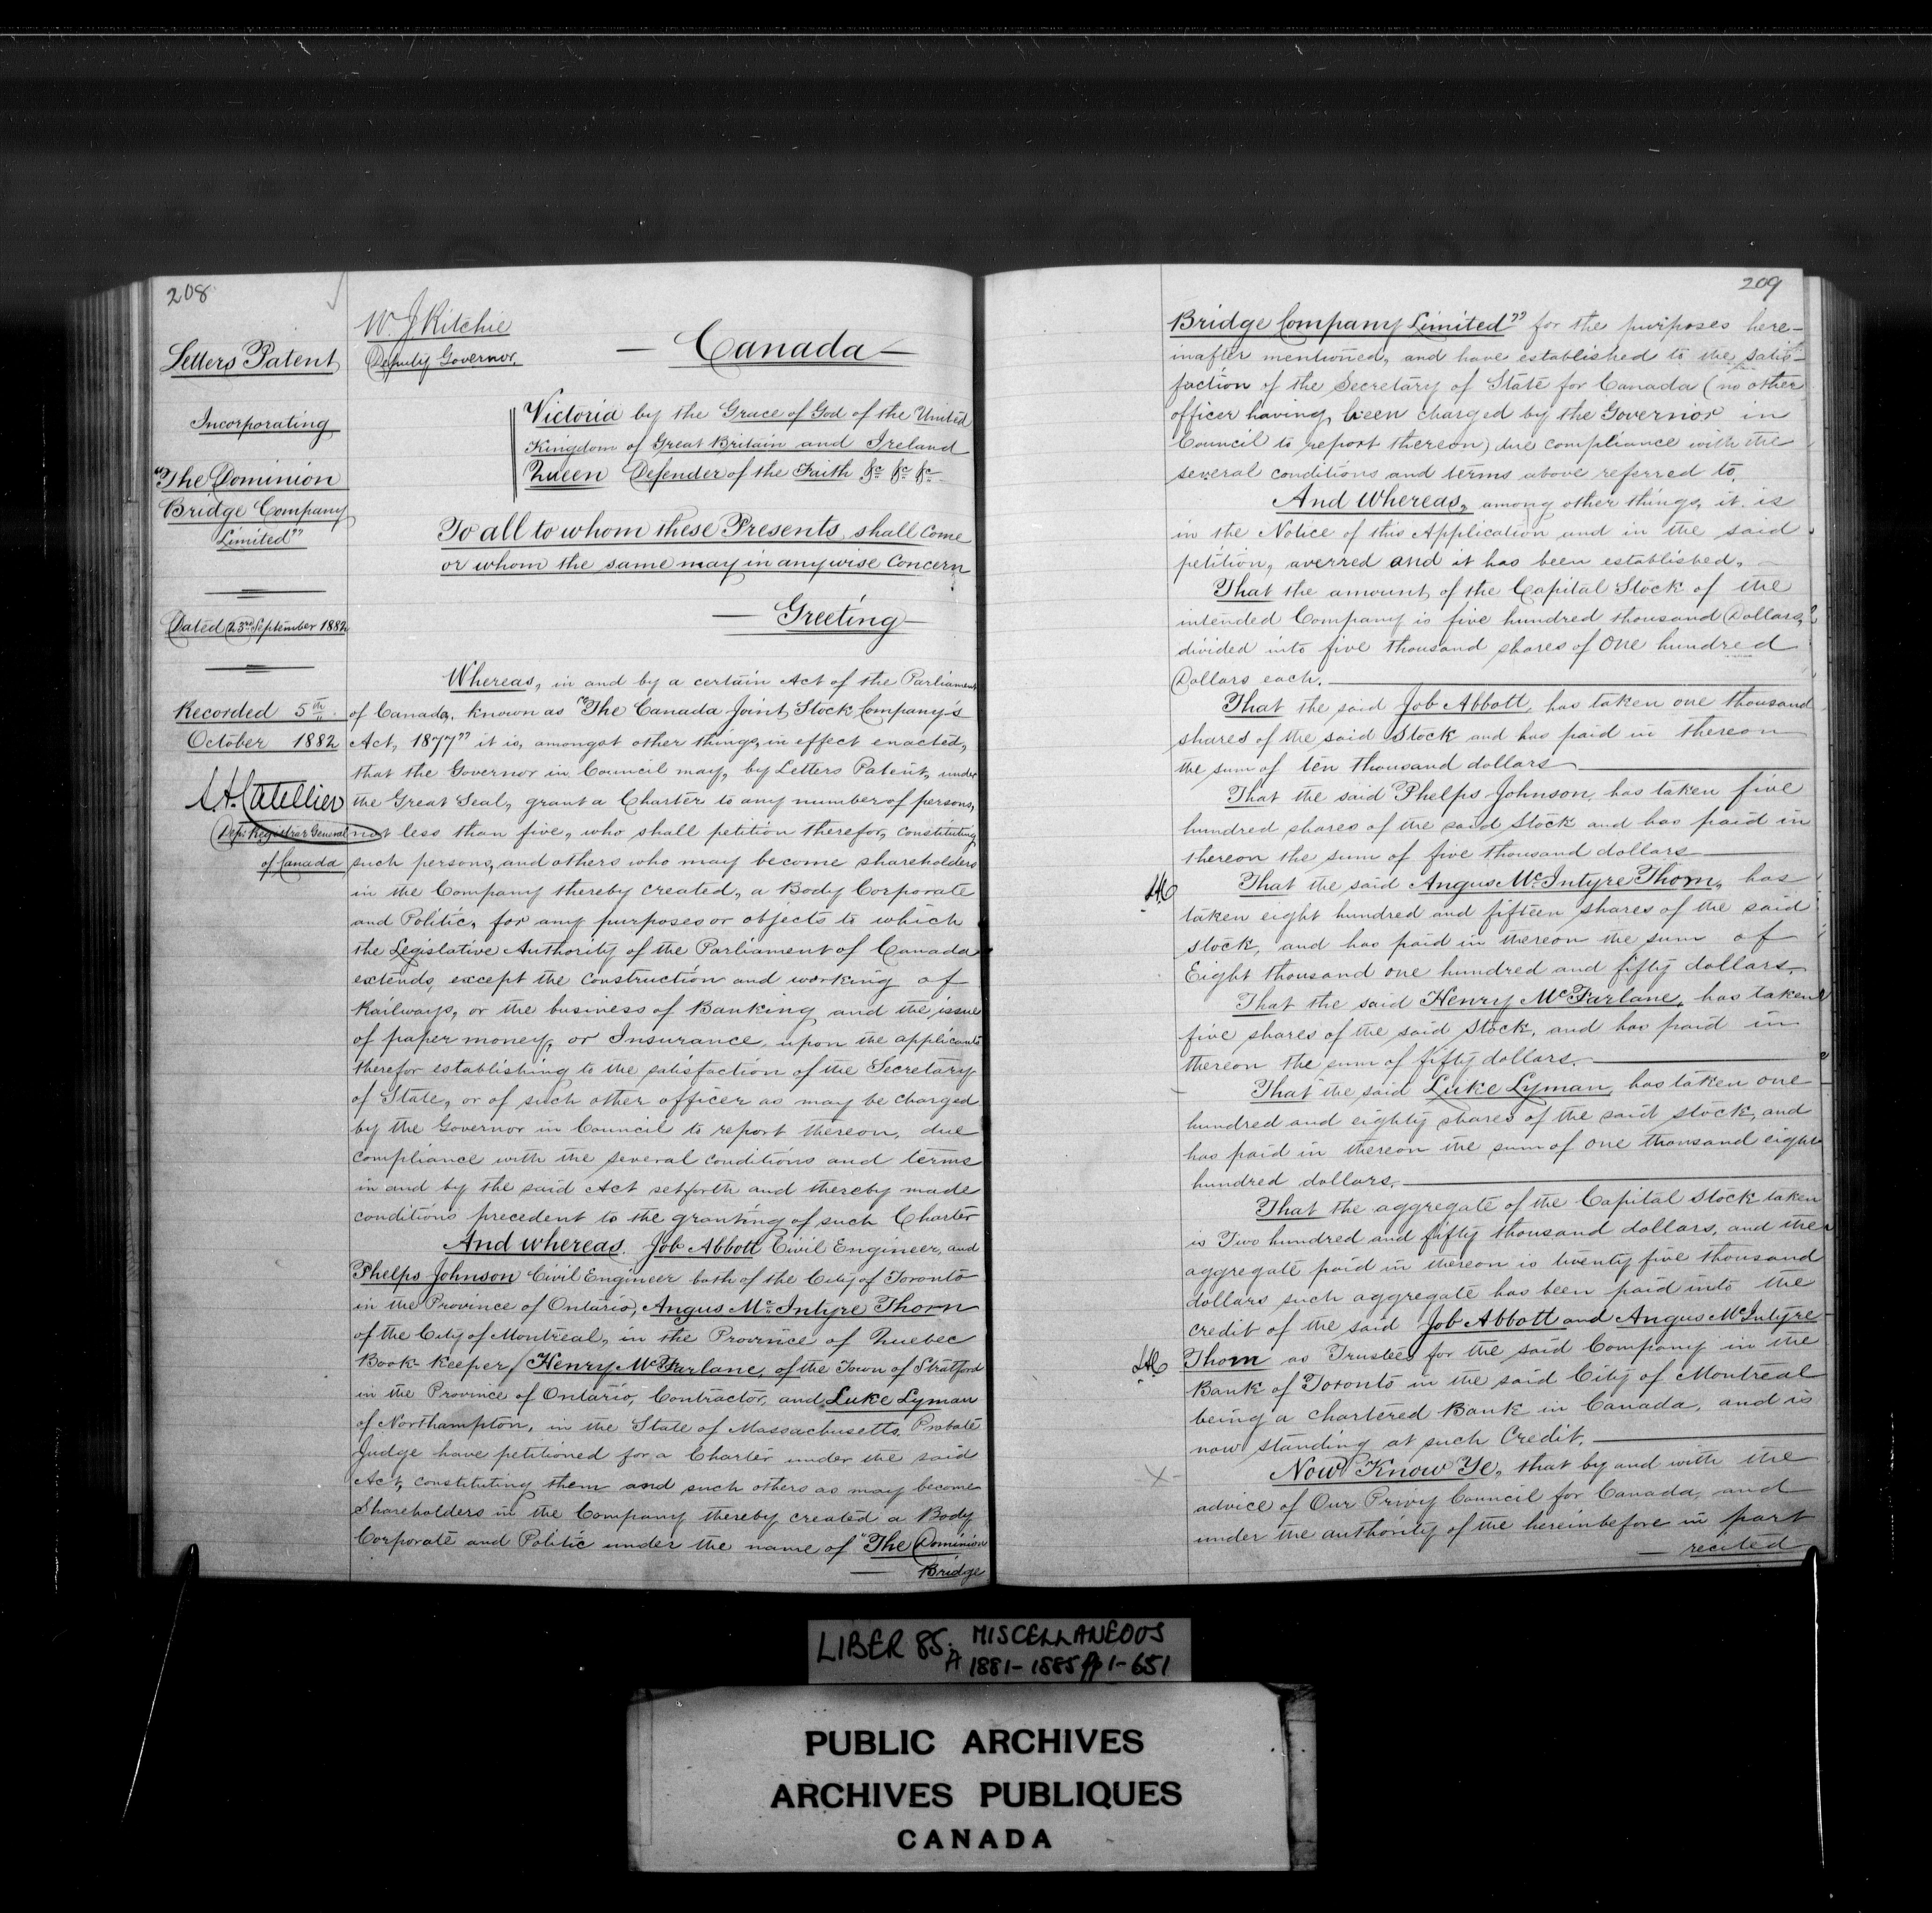 208
Letters Patent
Incorporating
"The Dominion
Bridge Company
Limited"
Dated 23rd September 1882
Recorded 5th
October 1882
Dep: Registrar General
of Canada
W. J Ritchie
Deputy Governor.
— Canada —
Victoria by the Grace of God of the United
Kingdom of Great Britain and Ireland
Queen Defender of the Faith &c &c &c
To all to whom these Presents shall come
or whom the same may in anywise Concern
— Greeting —
Whereas, in and by a certain Act of the Parliament
of Canada, known as "The Canada Joint Stock Company's
Act, 1877" it is, amongst other things, in effect enacted,
that the Governor in Council may, by Letters Patent, under
the Great Seal, grant a Charter to any number of persons,
not less than five, who shall petition therefor, constituting
such persons, and others who may become shareholders
in the Company thereby created, a Body Corporate
and Politic, for any purposes or objects to which
the Legislative Authority of the Parliament of Canada
extends, except the construction and working of
Railways, or the business of Banking and the issue
of paper money, or Insurance, upon the applicants
therefor establishing to the satisfaction of the Secretary
of State, or of such other officer as may be charged
by the Governor in Council to report thereon, due
compliance with the several conditions and terms
in and by the said Act set forth and thereby made
conditions precedent to the granting of such Charter
And whereas. Job Abbott Civil Engineer, and
Phelps Johnson Civil Engineer both of the City of Toronto
in the Province of Ontario, Angus Mc Intyre Thorn
of the City of Montreal, in the Province of Quebec
Book Keeper, Henry McFarlane, of the Town of Stratford
in the Province of Ontario, Contractor, and Luke Lyman
of Northampton, in the State of Massachusetts, Probate
Judge have petitioned for a Charter under the said
Act, constituting them and such others as may become
Shareholders in the Company thereby created a Body
Corporate and Politic under the name of "The Dominion
— Bridge
209
Bridge Company Limited" for the purposes here-
inafter mentioned, and have established to the satis-
faction of the Secretary of State for Canada (no other
officer having been charged by the Governor in
Council to report thereon) due compliance with the
several conditions and terms above referred to.
And Whereas, among other things, it is
in the Notice of this Application and in the said
petition, averred and it has been established,
That the amount of the Capital Stock of the
intended Company is five hundred thousand Dollars,
divided into five thousand shares of One hundred
Dollars each.
That the said Job Abbott, has taken one thousand
shares of the said Stock and has paid in thereon
the sum of ten thousand dollars
That the said Phelps Johnson, has taken five
hundred shares of the said Stock and has paid in
thereon the sum of five thousand dollars
That the said Angus McIntyre Thom, has
taken eight hundred and fifteen shares of the said
stock, and has paid in thereon the sum of
Eight thousand one hundred and fifty dollars.
That the said Henry McFarlane, has taken
five shares of the said Stock, and has paid in
thereon the sum of fifty dollars.
That the said Luke Lyman, has taken one
hundred and eighty shares of the said stock, and
has paid in thereon the sum of one thousand eight
hundred dollars.
That the aggregate of the Capital Stock taken
is Two hundred and fifty thousand dollars, and the
aggregate paid in thereon is twenty five thousand
dollars such aggregate has been paid into the
credit of the said Job Abbott and Angus McIntyre
Thom as Trustees for the said Company in the
Bank of Toronto in the said City of Montreal
being a chartered Bank in Canada, and is
now standing at such Credit.
Now Know Ye, that by and with the
advice of Our Privy Council for Canada, and
under the authority of the hereinbefore in part
— recited
LIBER 85. MISCELLANEOUS
A 1881-1885 pp 1-651
PUBLIC ARCHIVES
ARCHIVES PUBLIQUES
CANADA